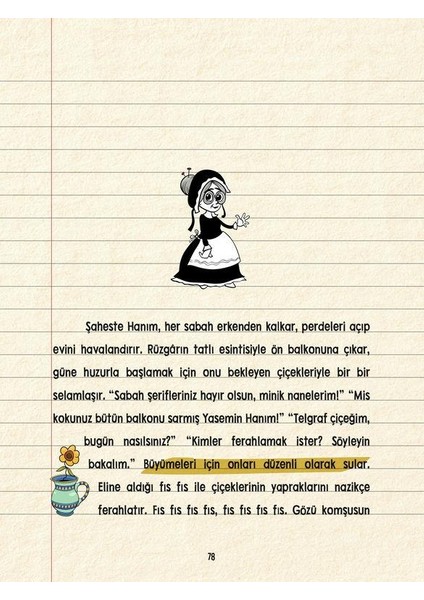 Şaheste Hanım, her sabah erkenden kalkar, perdeleri açıp
evini havalandırır. Rüzgârın tatlı esintisiyle ön balkonuna çıkar,
güne huzurla başlamak için onu bekleyen çiçekleriyle bir bir
selamlaşır. “Sabah şerifleriniz hayır olsun, minik nanelerim!” “Mis
kokunuz bütün balkonu sarmış Yasemin Hanım!” “Telgraf çiçeğim,
bugün nasılsınız?” “Kimler ferahlamak ister? Söyleyin
bakalım.” Büyümeleri için onları düzenli olarak sular.
Eline aldığı fıs fıs ile çiçeklerinin yapraklarını nazikçe
ferahlatır. Fıs fıs fıs fıs, fıs fıs fıs fıs. Gözü komşusun
78